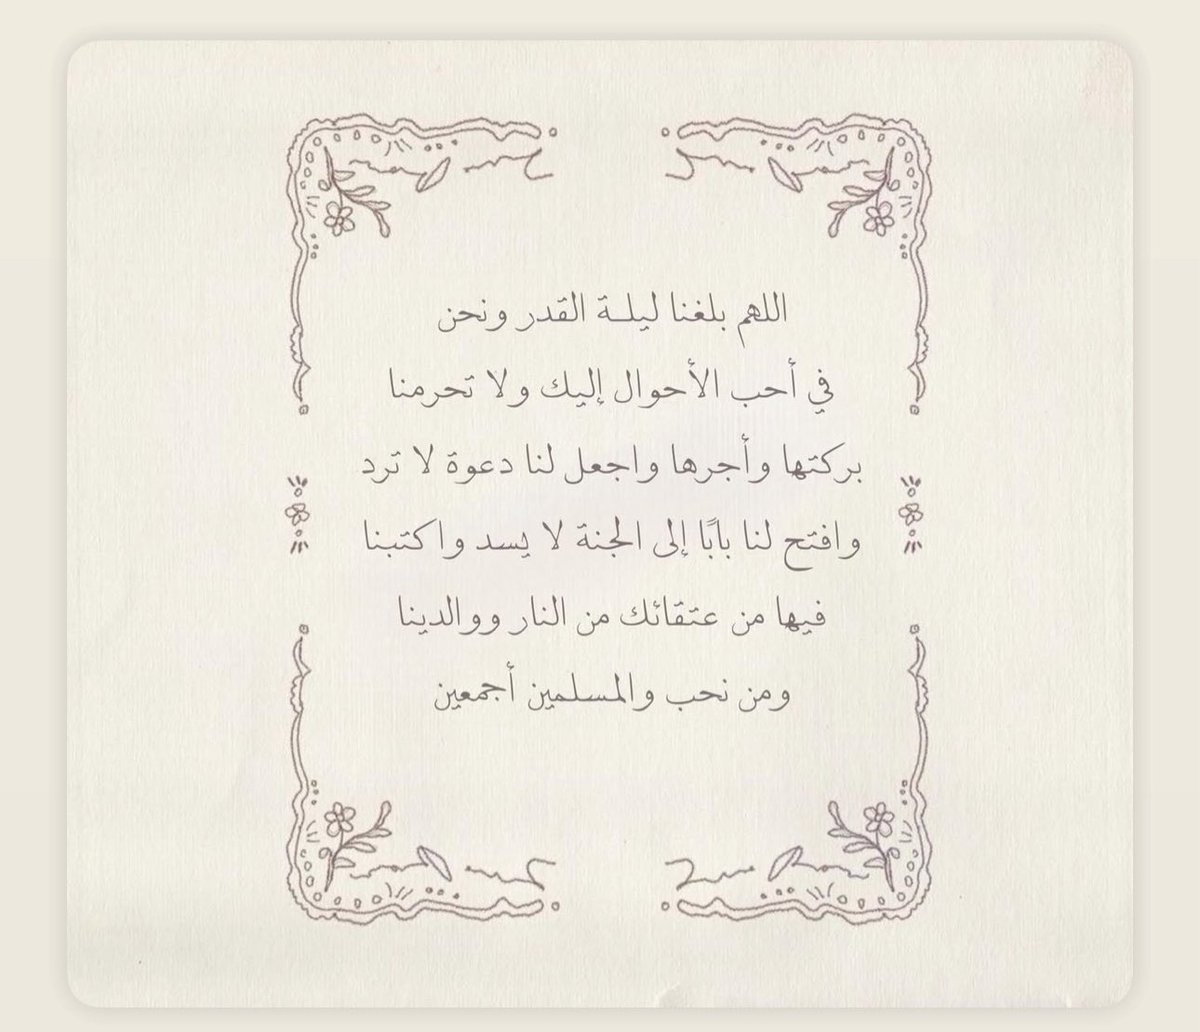 اللهم بلغنا ليلـة القدر ونحن
في أحب الأحوال إليك ولا تحرمنا
بركتها وأجرها واجعل لنا دعوة لا ترد
وافتح لنا بابًا إلى الجنة لا يسد واكتبنا
فيها من عتقائك من النار ووالدينا
ومن نحب والمسلمين أجمعين